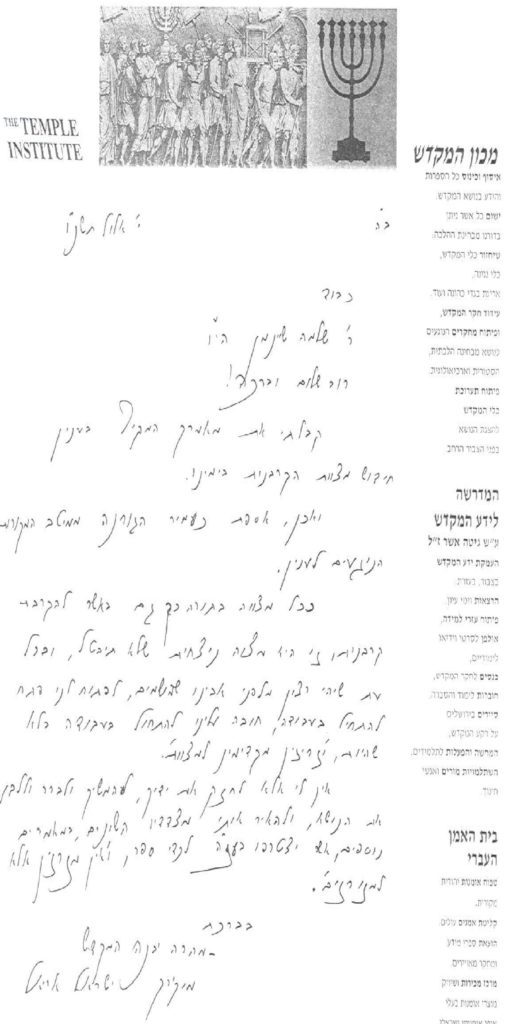 THE TEMPLE
INSTITUTE
מכון המקדש
איסוף וכינוס כל הספרות
והידע בנושא המקדש.
ישום כל אשר ניתן
בדורנו מבחינת ההלכה.
שיחזור כלי המקדש,
כלי נגינה,
אריגת בגדי כהונה ועוד.
עידוד חקר המקדש,
ופיתוח מחקרים הנוגעים
לנושא מבחינה הלכתית,
הסטורית וארכיאולוגית.
פיתוח תערוכת
כלי המקדש
להצגת הנושא
בפני הצבור הרחב
המדרשה
לידע המקדש
ע״ש גיטה אשר ז״ל
העמקת ידע המקדש
בצבור, בעזרת:
הרצאות וימי עיון.
פיתוח עזרי למידה,
אולפן לסרטי וידיאו
לימודיים,
כנסים לחקר המקדש,
חוברות לימוד והסברה.
סיורים בירושלים
על רקע המקדש,
המחשה והפעלות לתלמידים.
השתלמויות מורים ואנשי
חינוך.
בית האמן
העברי
טפוח אומנות יהודית
מקורית.
קליטת אמנים עולים.
הוצאת ספרי מידע
ומחקר מאויירים.
מרכז מכירות ושיווק
מוצרי אומנות בעלי
ב״ה
י׳ אלול תשנ״ו
כבוד
ר׳ שלמה שינמן הי״ו
רוב שלום וברכה!
קבלתי את מאמרך המקיף בענין
חידוש מצוות הקרבנות בימינו.
ואכן, אספת כעמיר הגורנה ממיטב המקורות
הנוגעים לענין.
ככל מצווה בתורה כך גם באשר להקרבת
קרבנות, זו היא מצוה ניצחית שלא תיבטל, ובכל
עת שיהי רצון מלפני אבינו שבשמים, לפתוח לנו פתח
להתחיל בעבודה, חובה עלינו להתחיל בעבודה בלא
שהיות, ״זריזין מקדימין למצוות״.
אין לי אלא לחזק את ידיך, להמשיך ולברר וללבן
את הנושא, ולהאיר אותו מצדדיו השונים, במאמרים
נוספים, אשר יצטרפו בעז״ה לכדי ספר, ו״אין מזרזין אלא
למזורזים״.
בברכת
מהרה יבנה המקדש
מוקירך ישראל אריאל